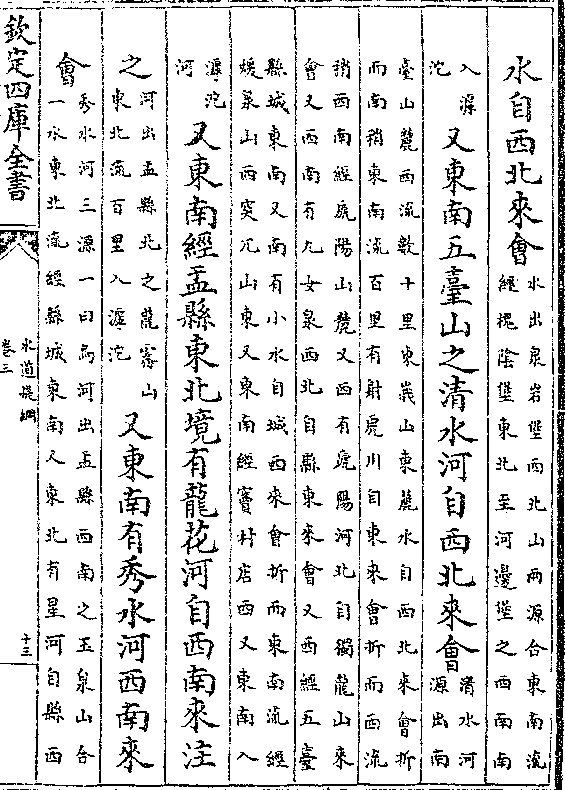 水自西北來會
水出泉岩堡西北山兩源合東南流
經槐陰堡東北至河邊堡之西南南
入滹
沱
又東南五臺山之清水河自西北來會
清水河
源出南
臺山麓西流數十里東峩山東麓水自西北來會折
而南稍東南流百里有射虎川自東來會折而西流
稍西南經虒陽山麓又西有虒陽河北自獨龍山來
會又西南有九女泉西北自縣東來會又西經五臺
縣城東南又南有小水自城西來會折而東南流經
媛泉山西突兀山東又東南經竇村店西又東南入
滹沱
河
又東南經盂縣東北境有龍花河自西南來注
之
河出盂縣北之龍霧山
東北流百里入滹沱
又東南有秀水河西南來
會
秀水河三源一曰烏河出盂縣西南之玉泉山合
一水東北流經縣城東南又東北有星河自縣西
欽定四庫全書
水道提綱
卷三
十三